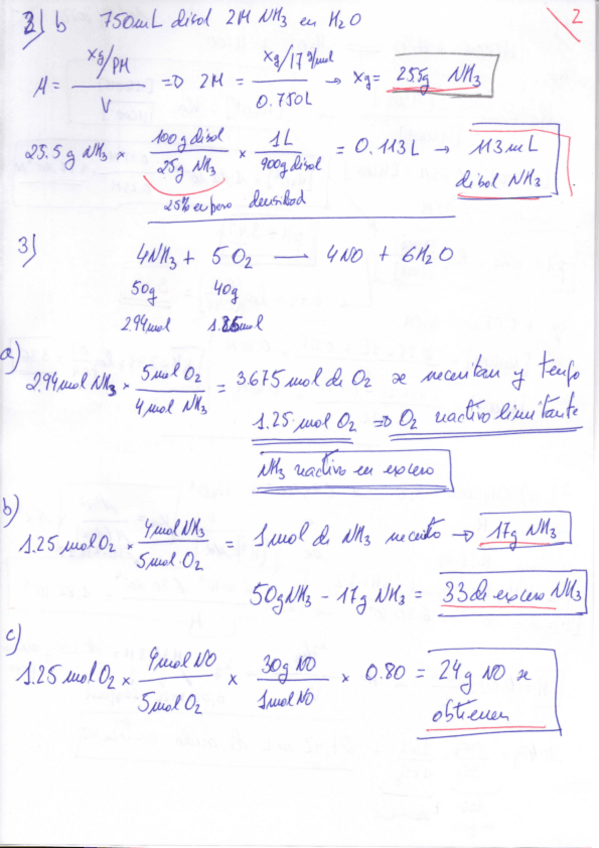 2) b 750mL disol 2M NH₃ en H₂O
2
M = (xg/PM)/V => 2M = (xg/17g/mol)/0.750L → xg = 25.5g NH₃
25.5 g NH₃ × 100g disol/25g NH₃ × 1L/900g disol = 0.113L → 113mL disol NH₃
25% en peso densidad
3) 4NH₃ + 5O₂ → 4NO + 6H₂O
50g 40g
2.94mol 1.25mol
a) 2.94mol NH₃ × 5mol O₂/4mol NH₃ = 3.675mol de O₂ se necesitan y tengo
1.25 mol O₂ => O₂ reactivo limitante
NH₃ reactivo en exceso
b) 1.25mol O₂ × 4mol NH₃/5mol O₂ = 1mol de NH₃ necesito → 17g NH₃
50gNH₃ - 17g NH₃ = 33 de exceso NH₃
c) 1.25mol O₂ × 4mol NO/5mol O₂ × 30g NO/1mol NO × 0.80 = 24g NO se
obtienen